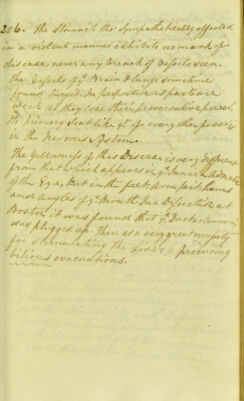 206. The Stomach tho' Sympathetically affected
in a violent manner exhibits no mark of
disease, never any break of Vessels seen.
The Vessels of yᵉ Brain & Lungs sometimes
found turgid. In proportion as parts are
weak as they lose their preservative power.
Its primary seat like yᵗ of every other fever is
in the Nervous System.
The yellowness of this Disease is very different
from that which appears in yᵉ Jaundice
of the Eye, but in the feet, armpits, hams
and angles of yᵉ Mouth. In a Dissection at
Boston it was found that yᵉ Ductus Communis
was plugged up. There is a very great necessity
for stimulating the Liver & producing
bilious evacuations.